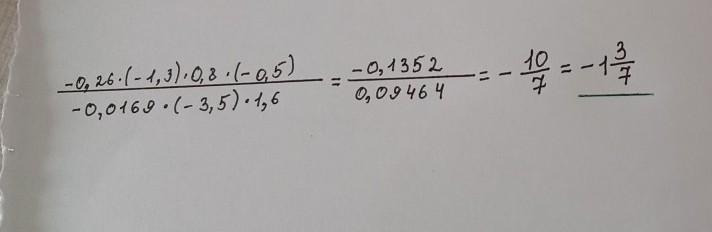 -0,26·(-1,3)·0,8·(-0,5) / -0,0169·(-3,5)·1,6 = -0,1352 / 0,09464 = - 10/7 = -1 3/7